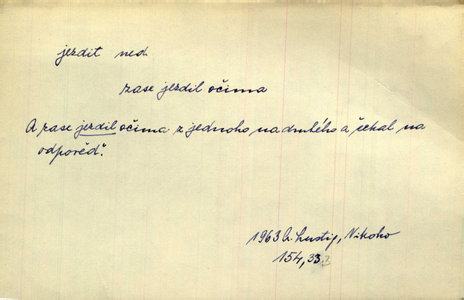 jezdit ned.
zase jezdil očima
A zase jezdil očima z jednoho na druhého a čekal na
odpověď.
1963 A. Lustig, Nikoho
154, 33